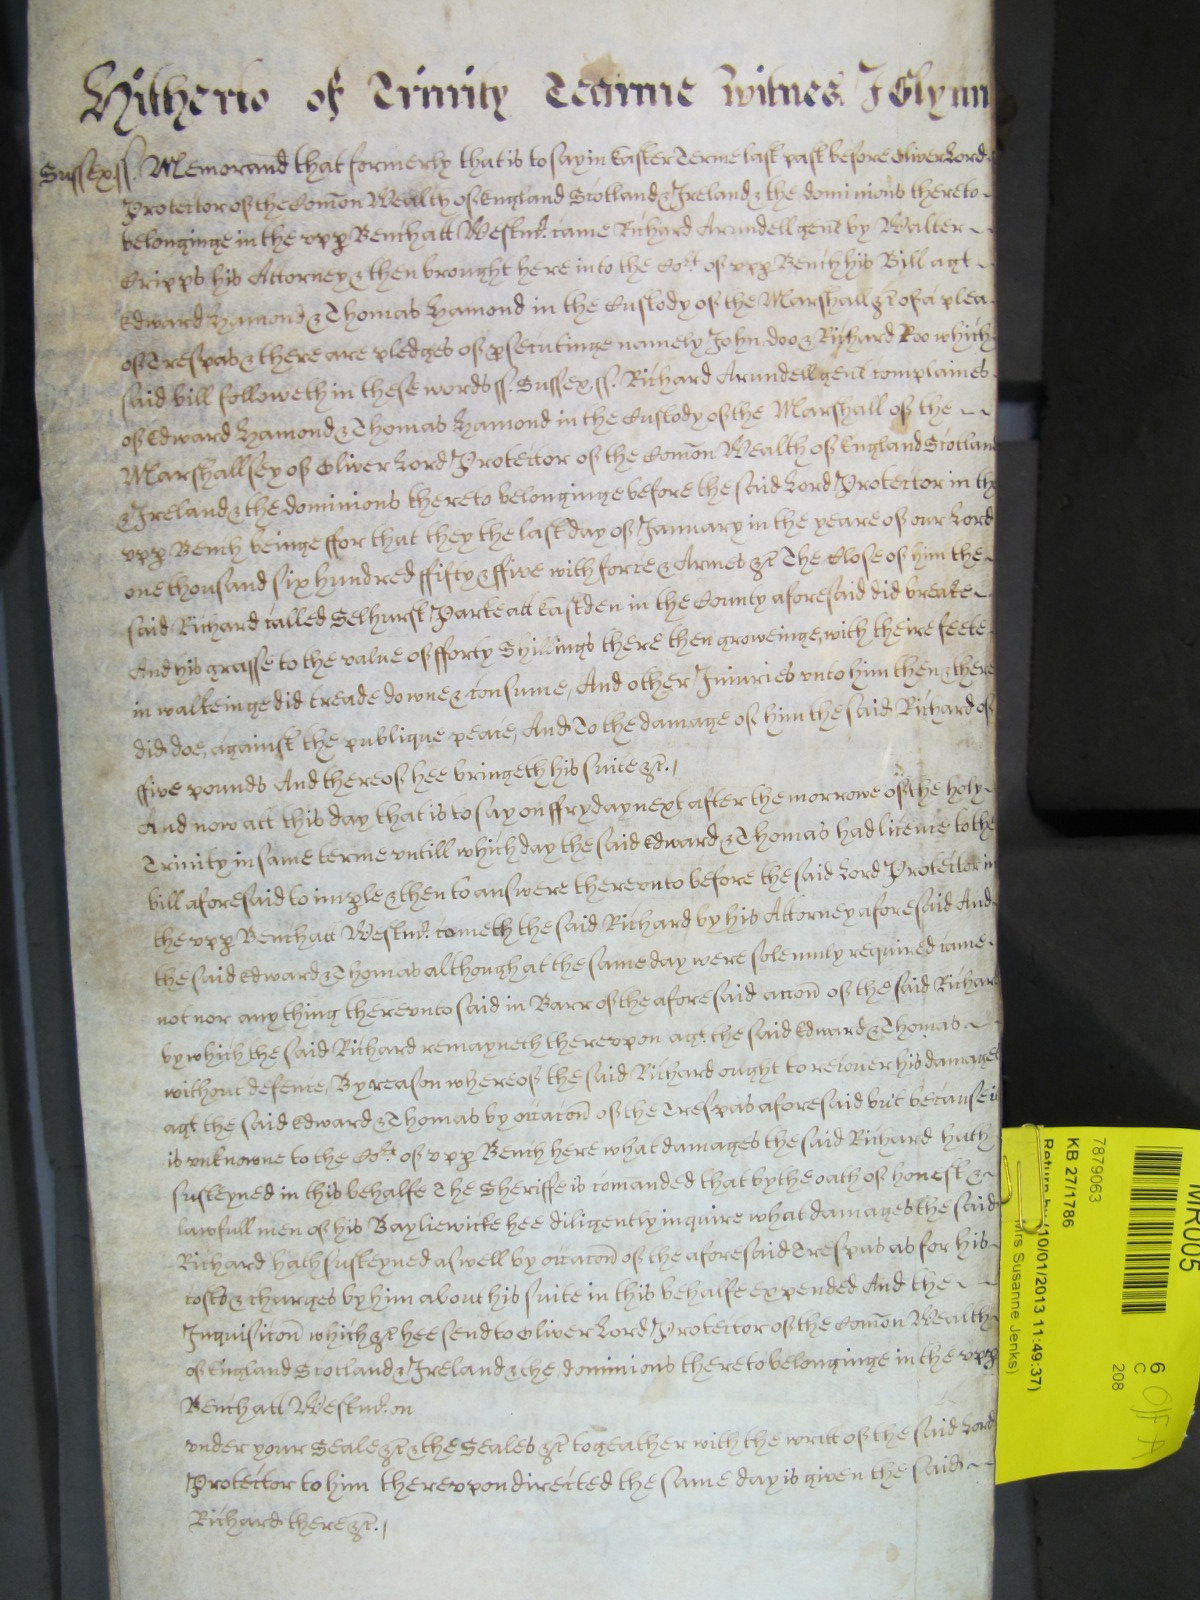 Hitherto of Trinity Tearme Witnes J Glynn
Sussex ss. Memorand that formerly that is to say in Easter Terme last past before Oliver Lord
Protector of the Comōn Wealth of England Scotland & Ireland & the dominions thereto
belonginge in the upp Bench att Westmr. came Richard Arundell genł by Walter
Cripps his Attorney & then brought here into the Cort. of upp Bench his Bill agt
Edward Hamond & Thomas Hamond in the Custody of the Marshall &c of a plea
of Trespas & there are pledges of psecutinge namely John doo & Richard Roo which
said bill followeth in these words ss. Sussex, ss. Richard Arundell genł complaines
of Edward Hamond & Thomas Hamond in the Custody of the Marshall of the
Marshallsey of Oliver Lord Protector of the Comōn Wealth of England Scotland
& Ireland & the dominions thereto belonginge before the said Lord Protector in the
upp Bench beinge ffor that they the last day of January in the yeare of our Lord
one thousand six hundred ffifty & ffive with force & Armes &c The Close of him the
said Richard called Selhurst Parke att Eastden in the County aforesaid did breake
And his grasse to the value of fforty Shillings there then groweinge, with theire feete
in walkeinge did treade downe & consume, And other Iniuries unto him then & there
did doe, against the publique peace, And To the damage of him the said Richard of
ffive pounds And thereof hee bringeth his suite &c.
And now att this day that is to say on ffryday next after the morrowe of the holy
Trinity in same terme untill which day the said Edward & Thomas had licence to the
bill aforesaid to imple & then to answere thereunto before the said Lord Protector in
the upp Bench att Westmr. cometh the said Richard by his Attorney aforesaid And
the said Edward & Thomas although at the same day were solemnly required came
not nor any thing thereunto said in Barr of the aforesaid accon̄ of the said Richard
by which the said Richard remayneth thereupon agt. the said Edward & Thomas
without defence, By reason whereof the said Richard ought to recover his damages
agt the said Edward & Thomas by occacon̄ of the Trespas aforesaid but because it
is unknowne to the Cort. of upp Bench here what damages the said Richard hath
susteyned in this behalfe The Sheriffe is comanded that by the oath of honest &
lawfull men of his Bayliewicke hee diligently inquire what damages the said
Richard hath susteyned aswell by occacon̄ of the aforesaid Trespas as for his
costs & charges by him about his suite in this behalfe expended And the
Inquisicon̄ which &c hee send to Oliver Lord Protector of the Comōn Wealth
of England Scotland & Ireland & the dominions thereto belonginge in the upp
Bench att Westmr. on
under your Seale &c & the Seales &c togeather with the writt of the said Lord
Protector to him thereupon directed the same day is given the said
Richard there &c.
MR005
7879063
KB 27/1786
Return by (10/01/2013 11:49:37)
Mrs Susanne Jenks)
6
C
208